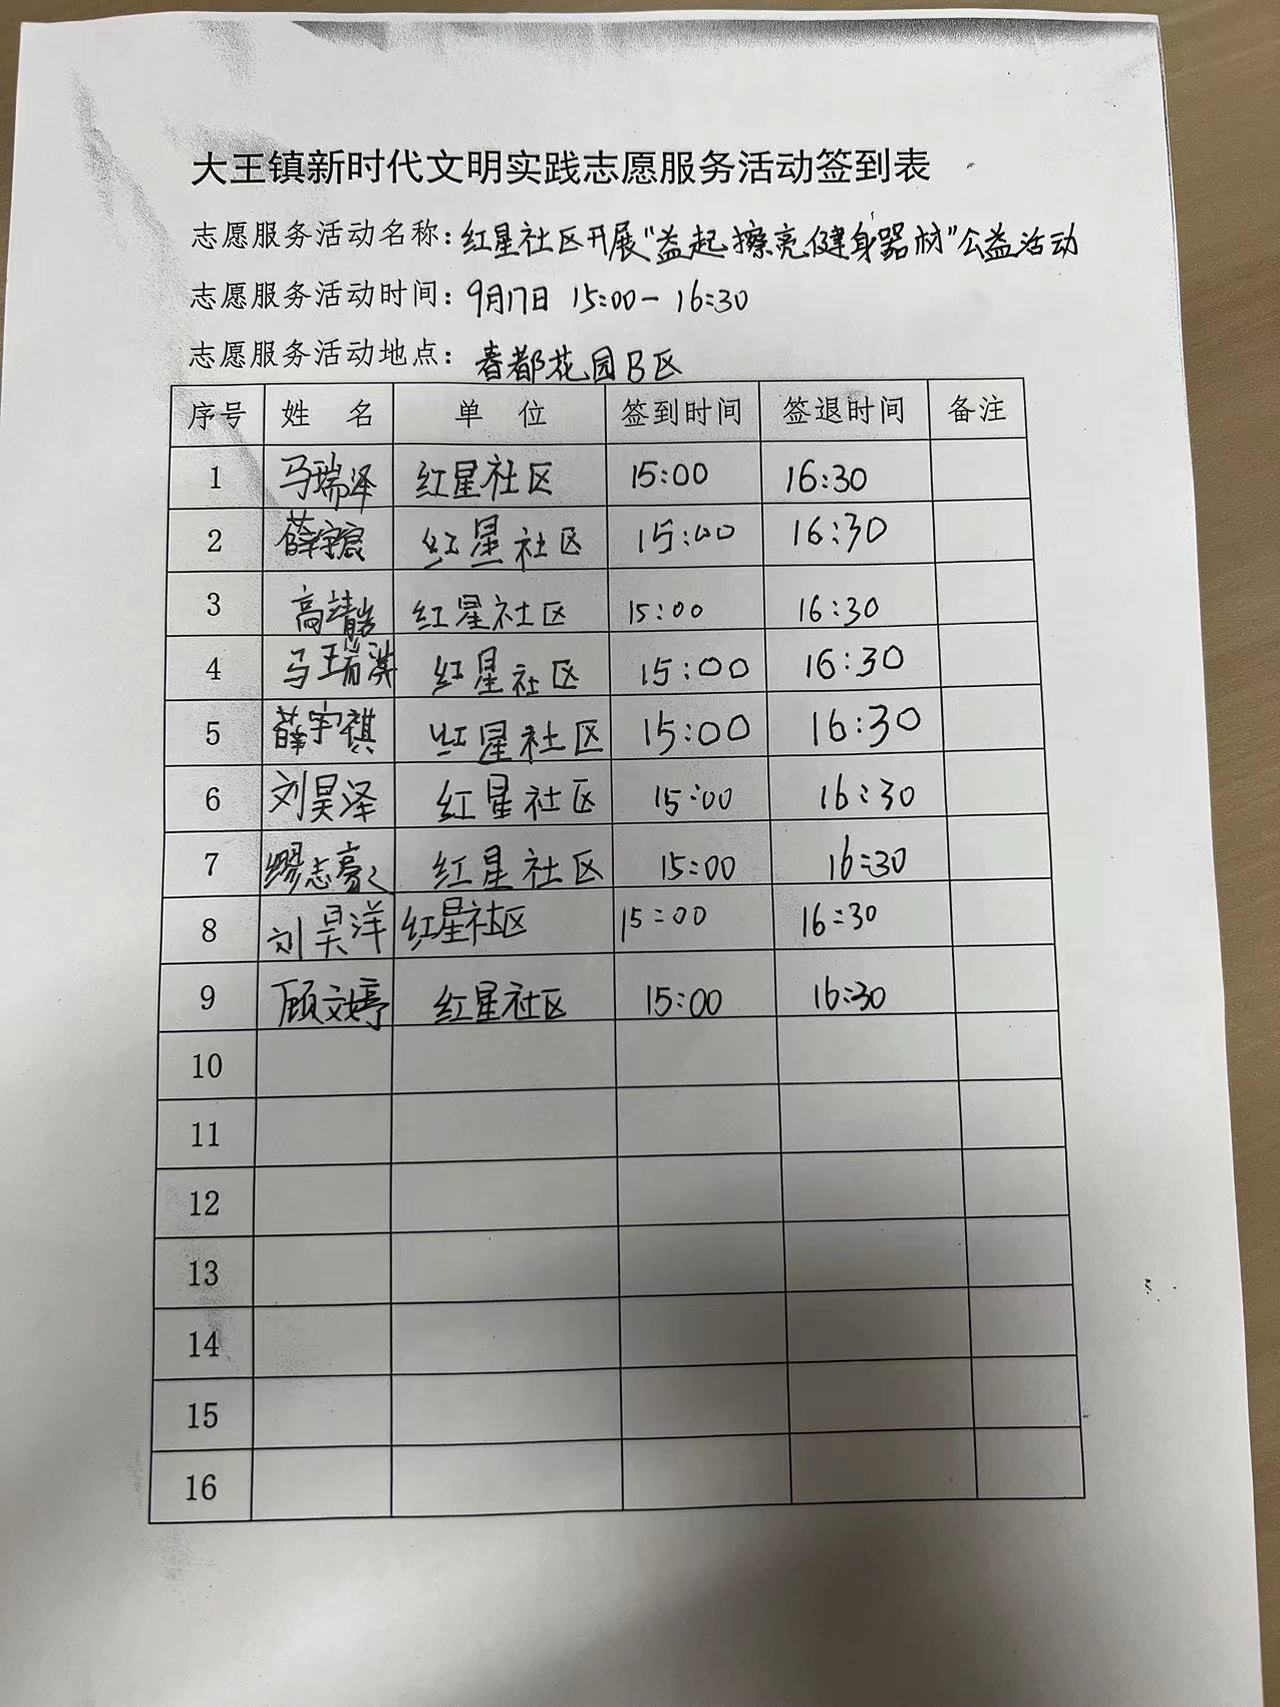 大王镇新时代文明实践志愿服务活动签到表
志愿服务活动名称:红星社区开展"益起擦亮健身器材"公益活动
志愿服务活动时间:9月17日 15:00-16:30
志愿服务活动地点:春都花园B区
序号 姓名 单位 签到时间 签退时间 备注
1 马瑞泽 红星社区 15:00 16:30
2 薛宇宸 红星社区 15:00 16:30
3 高靖 红星社区 15:00 16:30
4 马瑞淇 红星社区 15:00 16:30
5 薛宇祺 红星社区 15:00 16:30
6 刘昊泽 红星社区 15:00 16:30
7 缪志豪 红星社区 15:00 16:30
8 刘昊洋 红星社区 15:00 16:30
9 顾文婷 红星社区 15:00 16:30
10
11
12
13
14
15
16